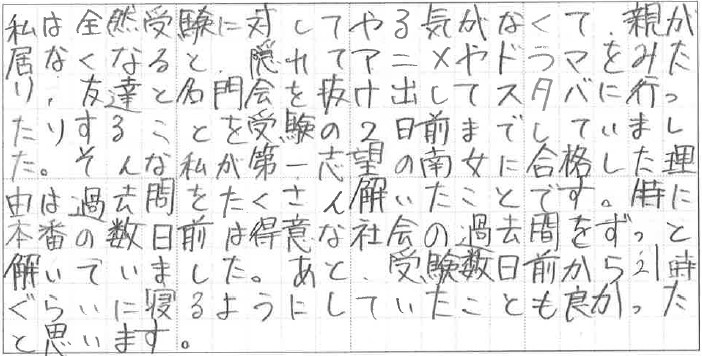 私は全然受験に対してやる気がなくて、親が
居なくなると、隠れてアニメやドラマをみた
り、友達と名門会を抜け出してスタバに行っ
たりすることを受験の2日前までしていまし
た。そんな私が第一志望の南女に合格した理
由は過去問をたくさん解いたことです。特に
本番の数日前は得意な社会の過去問をずっと
解いていました。あと、受験数日前から21時
ぐらいに寝るようにしていたことも良かった
と思います。